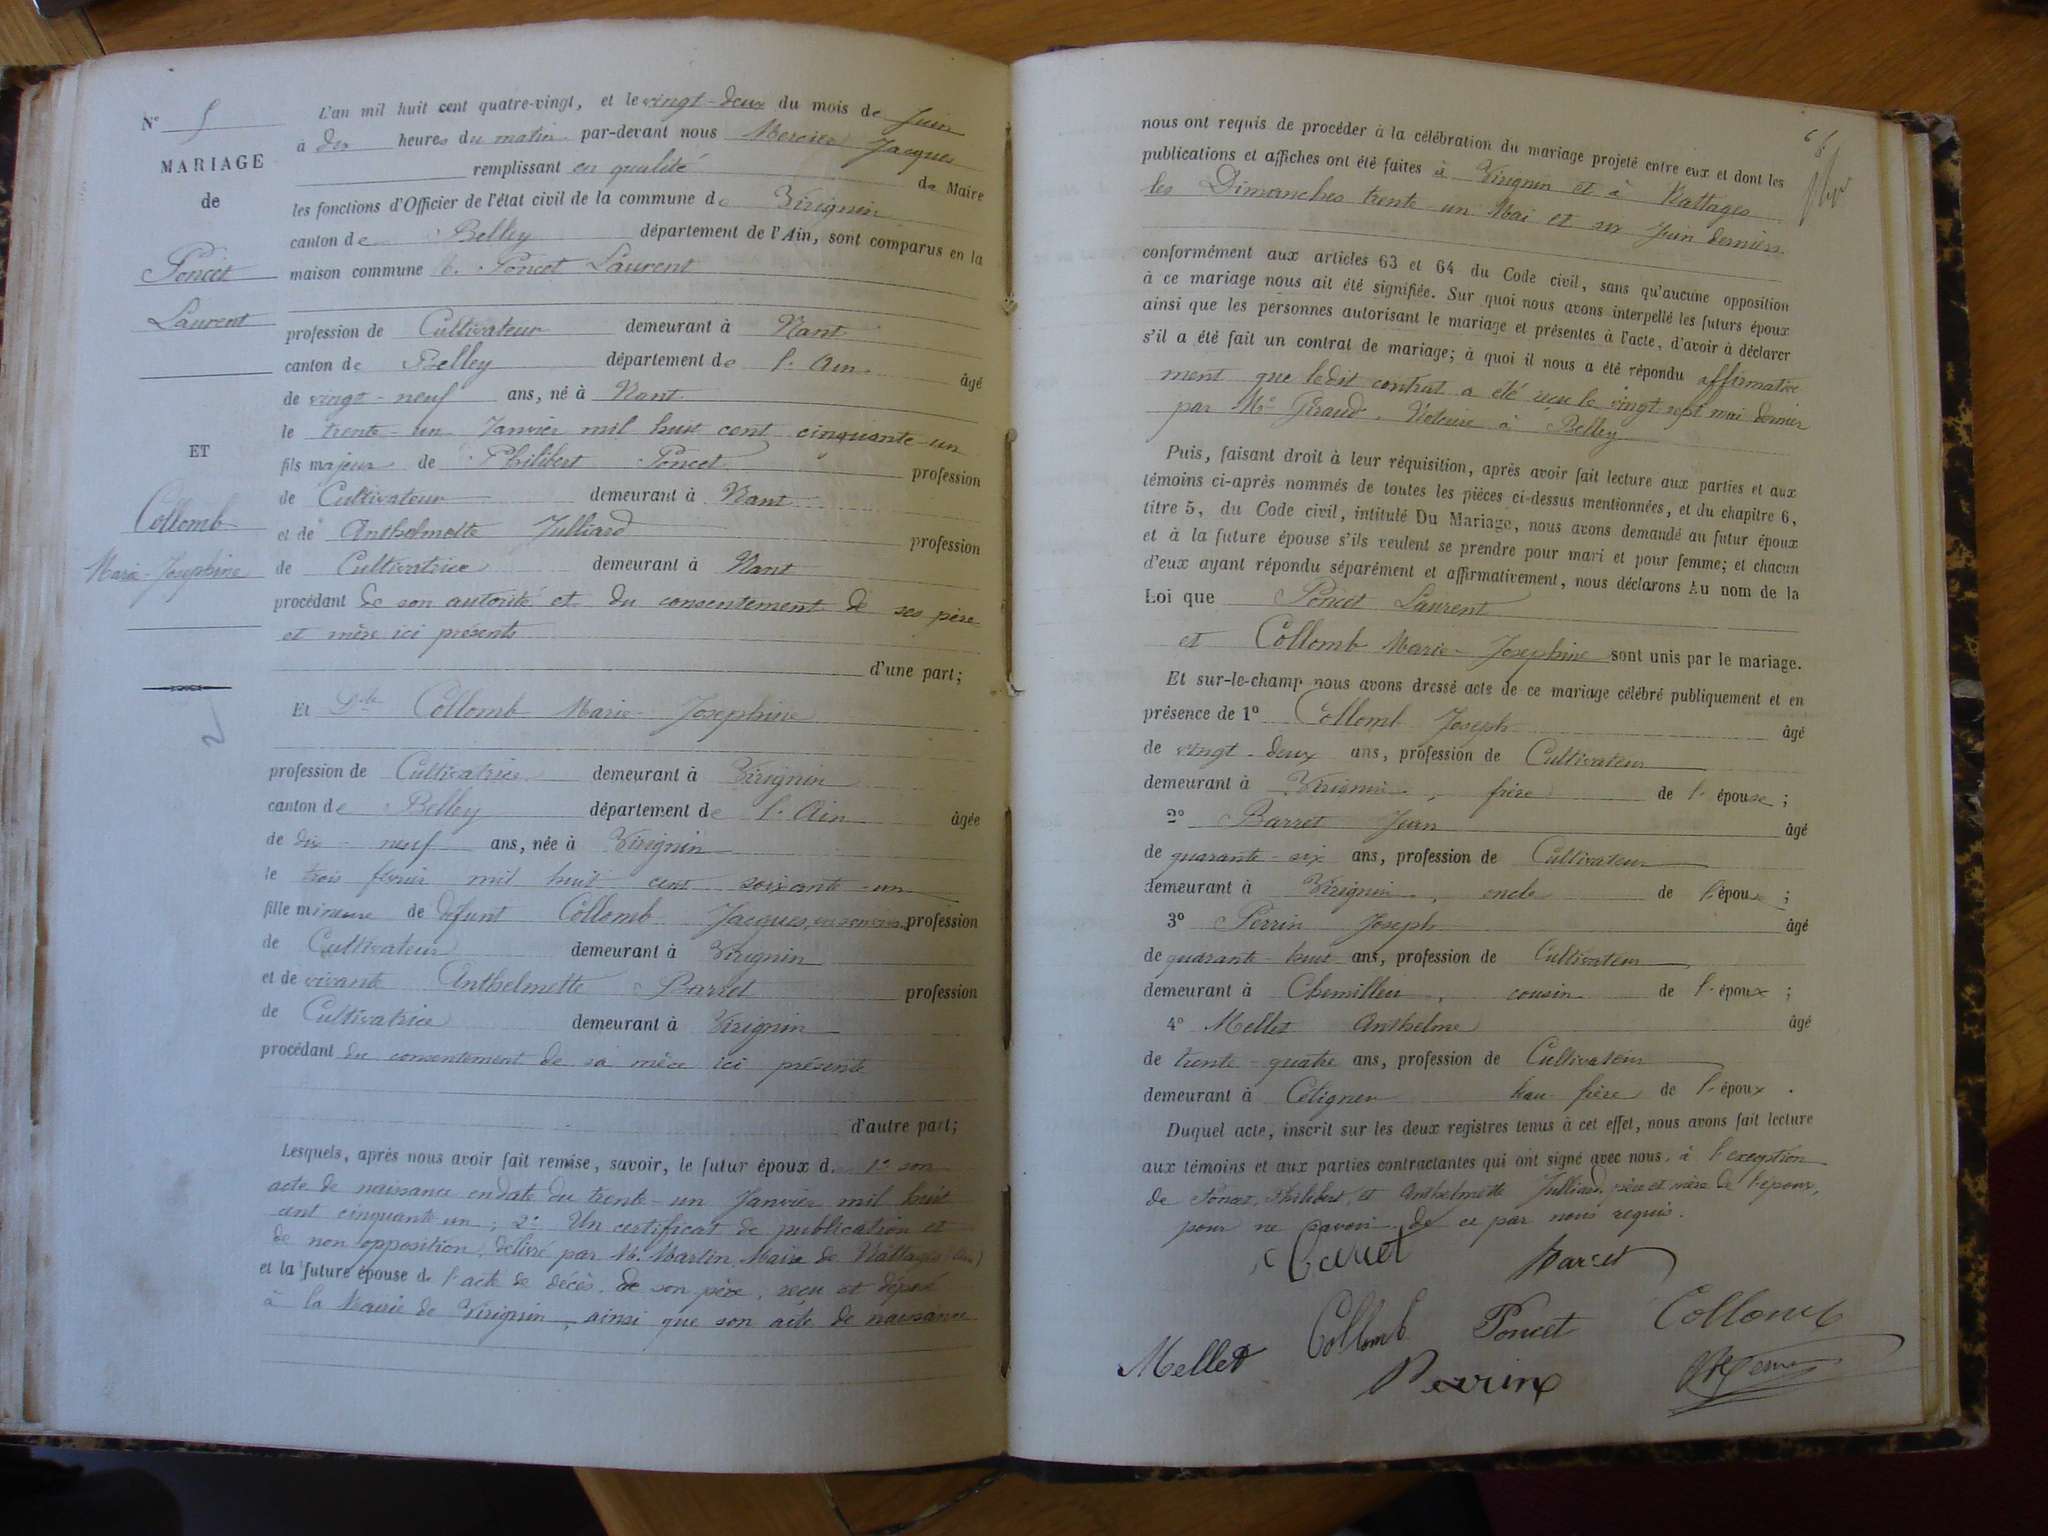 N° 5
MARIAGE
de
Poncet
Laurent
ET
Collomb
Marie-Josephine
L'an mil huit cent quatre-vingt, et le vingt-deux du mois de Juin
à dix heures du matin par-devant nous Mercier Jacques
remplissant en qualité de Maire
les fonctions d'Officier de l'état civil de la commune de Virignin
canton de Belley département de l'Ain, sont comparus en la
maison commune Poncet Laurent
profession de Cultivateur demeurant à Nant
canton de Belley département de l'Ain âgé
de vingt-neuf ans, né à Nant
le trente-un Janvier mil huit cent cinquante-un
fils majeur de Philibert Poncet profession
de Cultivateur demeurant à Nant
et de Anthelmette Julliard profession
de Cultivatrice demeurant à Nant
procédant de son autorité et du consentement de ses père
et mère ici présents
d'une part;
Et Dlle Collomb Marie-Josephine
profession de Cultivatrice demeurant à Virignin
canton de Belley département de l'Ain âgée
de dix-neuf ans, née à Virignin
le trois février mil huit cent soixante-un
fille mineure de défunt Collomb Jacques, en son vivant profession
de Cultivateur demeurant à Virignin
et de vivante Anthelmette Barret profession
de Cultivatrice demeurant à Virignin
procédant du consentement de sa mère ici présente
d'autre part;
Lesquels, après nous avoir fait remise, savoir, le futur époux d 1° son
acte de naissance en date du trente-un Janvier mil huit
cent cinquante un; 2° Un certificat de publication et
de non opposition, délivré par M. Martin Maire de Nattages (Ain)
et la future épouse de l'acte de décès de son père, reçu et déposé
à la Mairie de Virignin, ainsi que son acte de naissance
nous ont requis de procéder à la célébration du mariage projeté entre eux et dont les
publications et affiches ont été faites à Virignin et à Nattages
les Dimanches trente-un Mai et six Juin derniers
conformément aux articles 63 et 64 du Code civil, sans qu'aucune opposition
à ce mariage nous ait été signifiée. Sur quoi nous avons interpellé les futurs époux
ainsi que les personnes autorisant le mariage et présentes à l'acte, d'avoir à déclarer
s'il a été fait un contrat de mariage; à quoi il nous a été répondu affirmative
ment que ledit contrat a été reçu le vingt sept mai dernier
par Me Giraud, Notaire à Belley
Puis, faisant droit à leur réquisition, après avoir fait lecture aux parties et aux
témoins ci-après nommés de toutes les pièces ci-dessus mentionnées, et du chapitre 6,
titre 5, du Code civil, intitulé Du Mariage, nous avons demandé au futur époux
et à la future épouse s'ils veulent se prendre pour mari et pour femme; et chacun
d'eux ayant répondu séparément et affirmativement, nous déclarons Au nom de la
Loi que Poncet Laurent
et Collomb Marie-Josephine sont unis par le mariage.
Et sur-le-champ nous avons dressé acte de ce mariage célébré publiquement et en
présence de 1° Collomb Joseph âgé
de vingt-deux ans, profession de Cultivateur
demeurant à Virignin, frère de l'épouse;
2° Barret Jean âgé
de quarante-six ans, profession de Cultivateur
demeurant à Virignin, oncle de l'épouse;
3° Perrin Joseph âgé
de quarante-huit ans, profession de Cultivateur
demeurant à Chemillieu, cousin de l'époux;
4° Mellet Anthelme âgé
de trente-quatre ans, profession de Cultivateur
demeurant à Cétigneu beau-frère de l'époux.
Duquel acte, inscrit sur les deux registres tenus à cet effet, nous avons fait lecture
aux témoins et aux parties contractantes qui ont signé avec nous, à l'exception
de Poncet Philibert, et Anthelmette Julliard, père et mère de l'époux,
pour ne savoir de ce par nous requis.
Barret
Mellet Collomb Poncet Collomb
Perrin